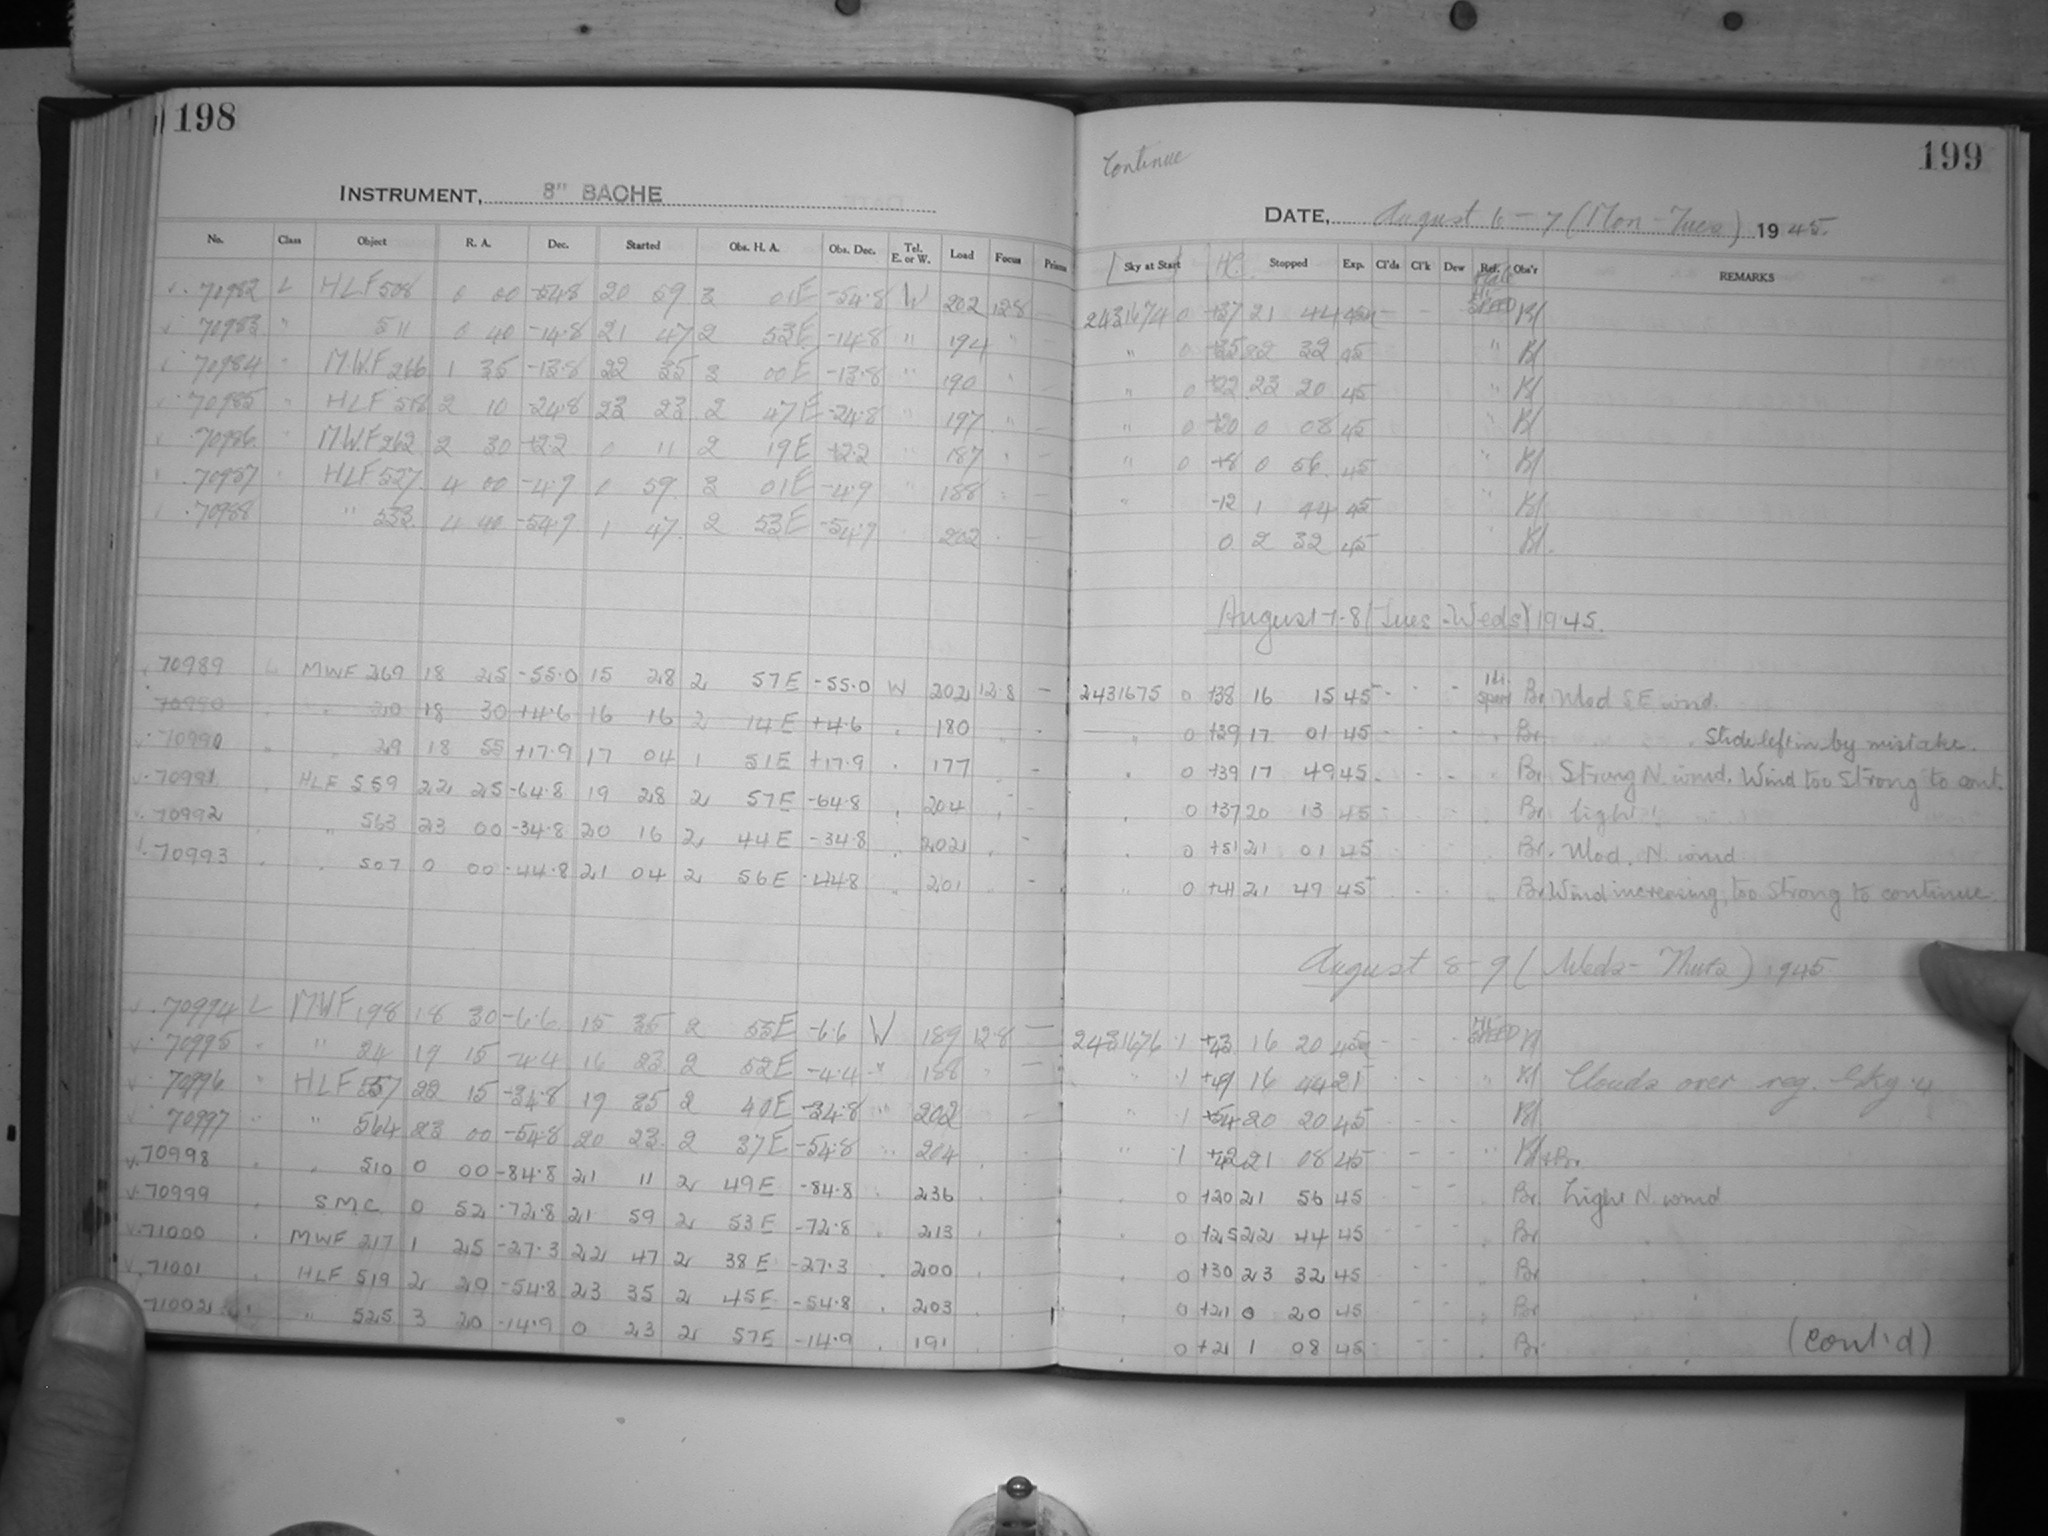 198
INSTRUMENT, 8" BACHE
No. Class Object R. A. Dec. Started Obs. H. A. Obs. Dec. Tel. E. or W. Load Focus Prisms
70982 L HLF 508 0 00 -54.8 20 59 3 01E -54.8 W 202 12.8
70983 " 511 0 40 -14.8 21 47 2 53E -14.8 " 194 "
70984 " M.W.F 266 1 35 -13.8 22 35 3 00E -13.8 " 190 "
70985 " HLF 518 2 10 -24.8 23 23 2 47E -24.8 " 197 "
70986 " M.W.F 262 2 30 +2.2 0 11 2 19E +2.2 " 187 "
70987 " HLF 527 4 00 -4.9 0 59 3 01E -4.9 " 188 "
70988 " 533 4 40 -54.9 1 47 2 53E -54.9 202
70989 L MWF 269 18 25 -55.0 15 28 2 57E -55.0 W 202 12.8 -
18 30 +4.6 16 16 2 14E +4.6 180
70990 " 29 18 55 +17.9 17 04 1 51E +17.9 177
70991 HLF 559 22 25 -64.8 19 28 2 57E -64.8 204
70992 " 563 23 00 -34.8 20 16 2 44E -34.8 202
70993 507 0 00 -44.8 21 04 2 56E -44.8 201
70994 L MWF 198 18 30 -6.6 15 35 2 55E -6.6 W 189 12.8 -
70995 " " 24 19 15 -4.4 16 23 2 52E -4.4 " 188
70996 " HLF 557 22 15 -34.8 19 35 2 40E -34.8 " 202
70997 " " 564 23 00 -54.8 20 23 2 37E -54.8 " 204
70998 " 510 0 00 -84.8 21 11 2 49E -84.8 236
70999 S.M.C. 0 52 -72.8 21 59 2 53E -72.8 213
71000 MWF 217 1 25 -27.3 22 47 2 38E -27.3 200
71001 HLF 519 2 20 -54.8 23 35 2 45E -54.8 203
71002 " 525 3 20 -14.9 0 23 2 57E -14.9 191
Continue
199
DATE, August 6-7 (Mon-Tues) 1945.
Sky at Start Stopped Exp. Cl'ds Cl'k Dew Ref. Obs'r REMARKS
2431674 0 +37 21 44 45 SPEED Bl
" 0 +35 22 32 45 " Bl
" 0 +22 23 20 45 " Bl
" 0 +20 0 08 45 Bl
" 0 +8 0 56 45 " Bl
" -12 1 44 45 " Bl
0 2 32 45 " Bl.
August 7-8 (Tues-Weds) 1945.
2431675 0 +38 16 15 45 - - - Hi. Speed Br Mod S.E wind.
" 0 +39 17 01 45 Br. Slide left in by mistake.
0 +39 17 49 45 Br Strong N. wind. Wind too strong to cont.
0 +37 20 13 45 Br Light
0 +51 21 01 45 Br. Mod. N. wind
" 0 +41 21 49 45 Br Wind increasing, too strong to continue.
August 8-9 (Weds-Thurs) 1945
2431676 1 +43 16 20 45 - - - SPEED Bl
" 1 +49 16 44 21 " Bl Clouds over reg. Sky 4
" 1 +54 20 20 45 Bl
" 1 +42 21 08 45 " Bl + Br.
0 +20 21 56 45 Br. Light N. wind
0 +25 22 44 45 Br
0 +30 23 32 45 Br
0 +21 0 20 45 Br
0 +21 1 08 45 Br
(Cont'd)